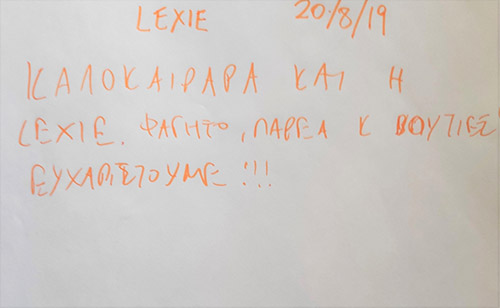 LEXIE 20/8/19
ΚΑΛΟΚΑΙΡΑΡΑ ΚΑΙ Η
LEXIE. ΦΑΓΗΤΟ, ΠΑΡΕΑ Κ ΒΟΥΤΙΕΣ
ΕΥΧΑΡΙΣΤΟΥΜΕ!!!